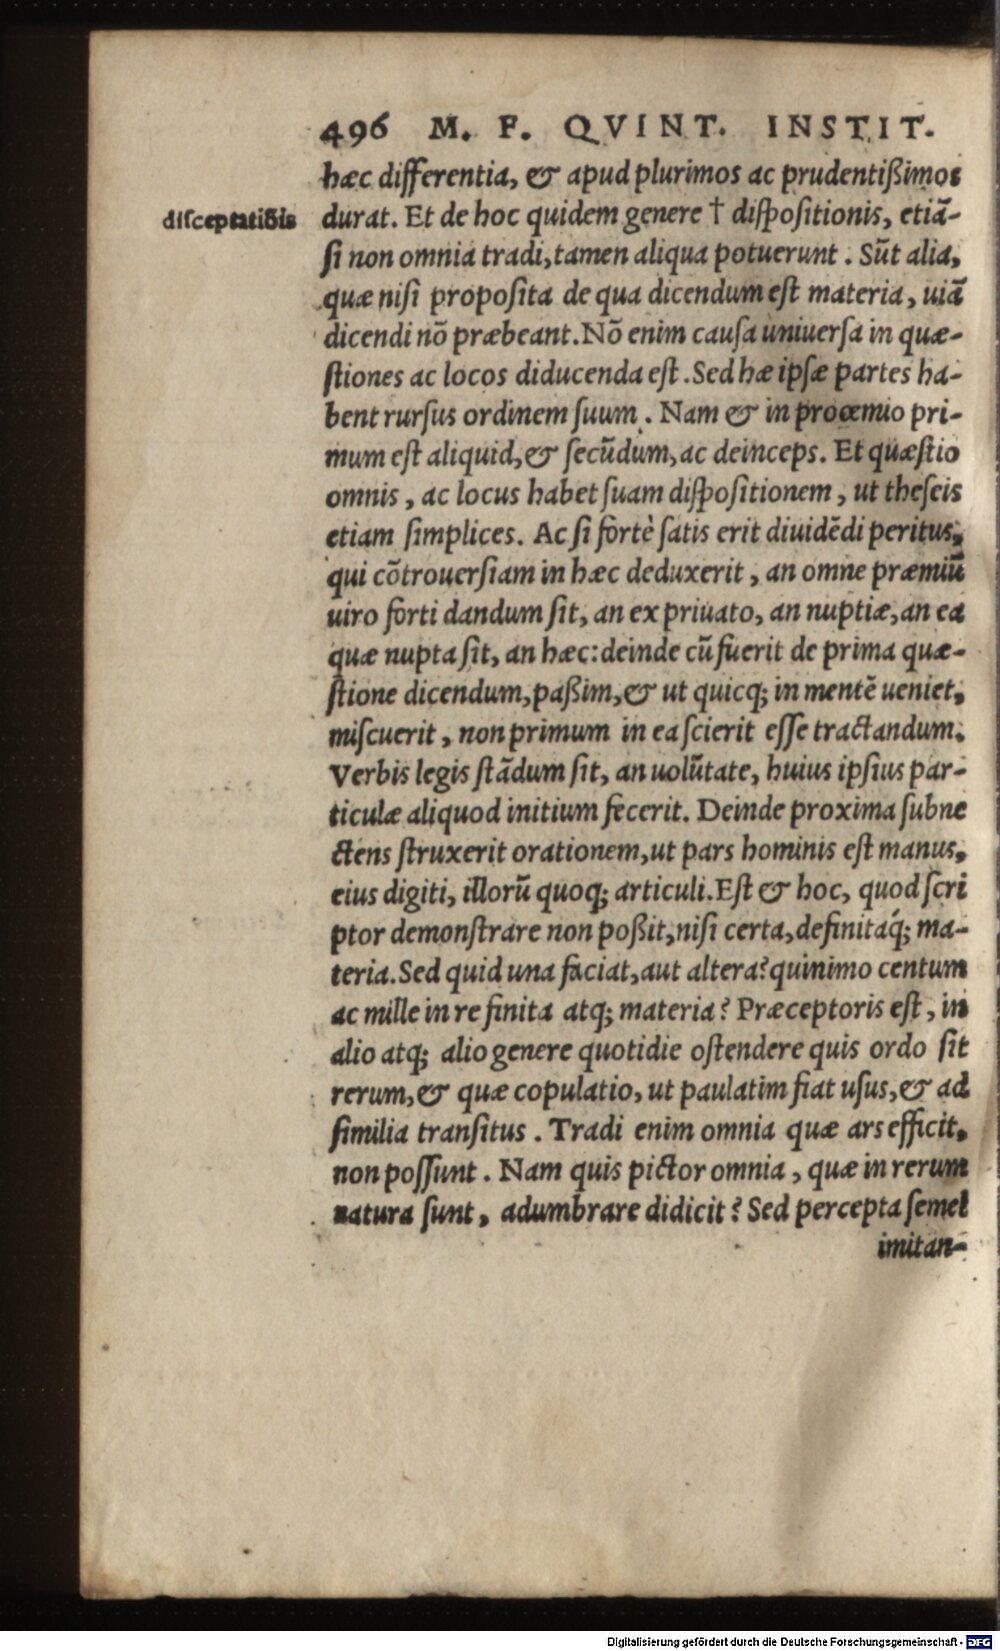 496 M. F. QVINT. INSTIT.
hæc differentia, & apud plurimos ac prudentißimos
diſceptatiõis
durat. Et de hoc quidem genere † diſpoſitionis, etiã-
ſi non omnia tradi, tamen aliqua potuerunt. Sũt alia,
quæ niſi propoſita de qua dicendum eſt materia, uiã
dicendi nõ præbeant. Nõ enim cauſa uniuerſa in quæ-
ſtiones ac locos diducenda eſt. Sed hæ ipſæ partes ha-
bent rurſus ordinem ſuum. Nam & in proœmio pri-
mum eſt aliquid, & ſecũdum, ac deinceps. Et quæſtio
omnis, ac locus habet ſuam diſpoſitionem, ut theſeis
etiam ſimplices. Ac ſi fortè ſatis erit diuidẽdi peritus,
qui cõtrouerſiam in hæc deduxerit, an omne præmiũ
uiro forti dandum ſit, an ex priuato, an nuptiæ, an ea
quæ nupta ſit, an hæc: deinde cũ fuerit de prima quæ-
ſtione dicendum, paßim, & ut quicq; in mentẽ ueniet,
miſcuerit, non primum in ea ſcierit eſſe tractandum.
Verbis legis ſtãdum ſit, an uolũtate, huius ipſius par-
ticulæ aliquod initium fecerit. Deinde proxima ſubne
ctens ſtruxerit orationem, ut pars hominis eſt manus,
eius digiti, illorũ quoq; articuli. Eſt & hoc, quod ſcri
ptor demonſtrare non poßit, niſi certa, definitaq́; ma-
teria. Sed quid una faciat, aut altera? quinimo centum
ac mille in re finita atq; materia? Præceptoris eſt, in
alio atq; alio genere quotidie oſtendere quis ordo ſit
rerum, & quæ copulatio, ut paulatim fiat uſus, & ad
ſimilia tranſitus. Tradi enim omnia quæ ars efficit,
non poſſunt. Nam quis pictor omnia, quæ in rerum
natura ſunt, adumbrare didicit? Sed percepta ſemel
imitan-
Digitalisierung gefördert durch die Deutsche Forschungsgemeinschaft - DFG